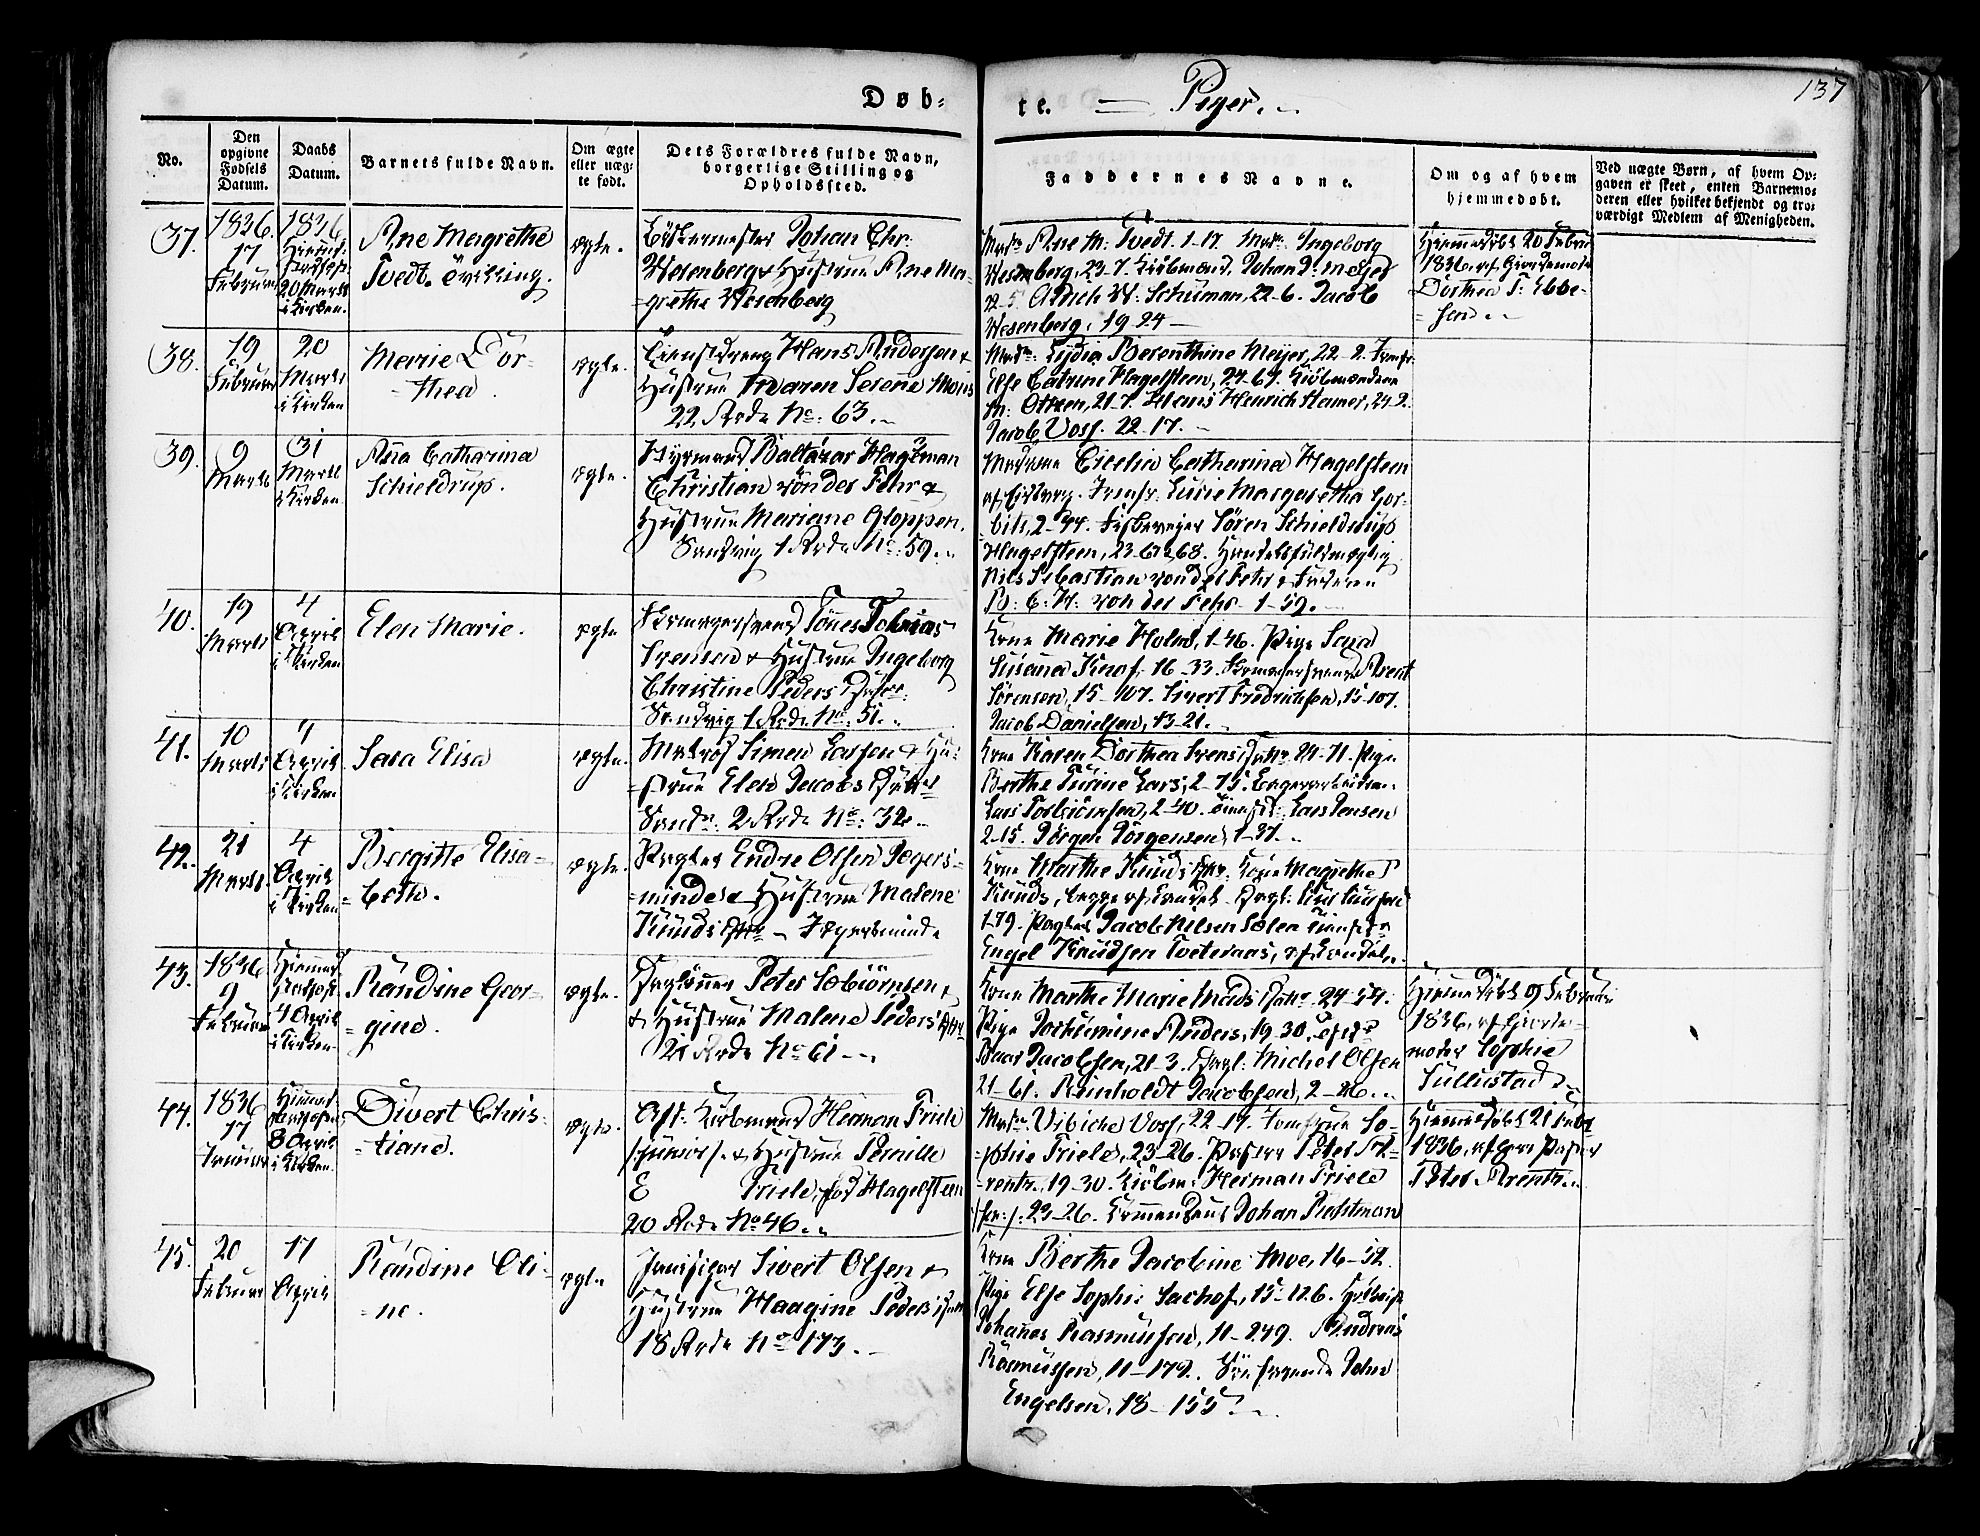 Døb-
te. — Piger.
137
No.
Den opgivne Fødsels Datum.
Daabs Datum.
Barnets fulde Navn.
Om ægte eller uæg- te født.
Dets Forældres fulde Navn, borgerlige Stilling og Opholdssted.
Faddernes Navne.
Om og af hvem hjemmedøbt.
Ved uægte Børn, af hvem Op-
gaven er skeet, enten Barnemo-
deren eller hvilket bekjendt og tro-
værdigt Medlem af Menigheden.
37.
1836.
17
Februar
1836
20 Marts
i Kirken.
Ane Magrethe
Tvedt.
ægte.
Johan Chr:
Wesenberg & Hustrue Ane Ma-
grethe Wesenberg
Mad: Ane M: Tvedt. 1-17. Mad: Ingeborg
Wesenberg, 23-7. Kiöbmænd. Johan D: Meyer
W: Schuman, 22-6. Jacob
Wesenberg. 19-24
Hiemmedöbt 20 Febru
1836, af Giordemoder
Dorthea T: Ebbe-
sen.
38.
19
Februar
20
Marts
i Kirken
Marie Dor-
thea.
ægte.
Tienestdreng Hans Andersen &
Hustrue Maren Serene Mons
22 Rode No. 63.
Mad: Lydia Berenthine Meyer, 22-2. Jomfr:
Else Catrine Hagelsteen, 24-67. Kiöbmændene
M: Ottesen, 21-7. Hans Henrich Hamer, 24-2.
Jacob Voss. 22-17.
39.
9
Marts
31
Marts
i Kirken.
Ana Catharina
Schieldrup.
ægte.
Styrmand Baltazar Hagtman
Christian von der Fehr &
Hustrue Mariane Gloppen.
Sandvig 1 Rode No: 59.
Madame Cicelia Catharina Hagelsteen
Jomfr: Lucie Margaretha Gor-
bitz, 2-44. Sören Schieldrup
Hagelsteen, 23-67 & 68. Handelsfuldmægtig
Nils Sebastian von der Fehr & Faderen
B: C: H: von der Fehr 1-59.
40.
19
Marts
4
April
i Kirken
Elen Marie.
ægte
Tönes Tobias
Svensen & Hustrue Ingeborg
Christine Peders Datter.
Sandvig 1 Rode No: 51.
Kone Marie Holm, 1-46. Pige Sara
Susana Knof. 16-33. Arent
Sörensen, 15-107. Sivert Fredrichsen, 15-107.
Jacob Danielsen, 13-21.
41.
10
Marts
4
April
i Kirken
Sara Elisa
ægte.
Matros Simen Larsen & Hu-
strue Elen Jacobs Datter
Sandv: 2 Rode No: 32.
Kone Karen Dorthea Svens Datter 24-71. Pige
Berthe Turine Lars, 2-75.
Lars Torbiörnsen, 2-40. Lars Jensen
2-15. Jörgen Jörgensen, 1-37.
42.
21
Marts.
4
April
i Kirken
Bergitte Elisa-
beth.
ægte.
Pagter Endre Olsen Jegers-
minde & Hustrue Malene
Knuds Datter - Jegersminde
Kone Marthe Knuds Datter. Magrethe
Knuds, begge af Landet.
1-79. Pagter Jacob Nilsen Sælen
Engel Knudsen Tveteraas, af Landet.
43.
1836
9
Februar
4 April
i Kirken
Randine Geor-
gine.
ægte.
Dagl Peter Sebiörnsen
& Hustrue Malene Peders Datter
21 Rode No 61
Kone Marthe Marie Mads Datter. 24-54.
Pige Anders, 19-30.
Jacobsen, 21-3. Dagl: Michel Olsen
21-61. Reinholdt Jacobsen, 2-26.
Hiemmedöbt 9 Februar
1836, af Giorde-
moder Sophie
Tullustad.
44.
1836
17
8 April
i Kirken.
Divert Chris-
tiane.
ægte.
Afd: Kiöbmand Herman Friele
/: junior :/ & Hustrue Pernille
E Friele, föd Hagelsteen
20 Rode No 46.
Mad: Wibiche Voss, 22-17. Jomfrue So-
phie Friele, 23-26. Pastor Peter A-
rentz, 19-30. Kiöbm: Herman Friele
/: sen: :/ 23-26. Johan Rohtman
Hiemmedöbt 21 Febr
1836, af Herr Pastor
Peter Arentz.
45.
20
Februar
17
April
Randine Oli-
ne.
ægte
Sivert Olsen &
Hustrue Haagine Peders Datter
18 Rode No 173.
Kone Berthe Jacobine Moe, 16-52.
Pige Else Sophie Sachof, 15-126.
Johanes Rasmussen, 11-249. Andreas
Rasmussen, 11-179. Söefarende John
Engelsen, 18-155.